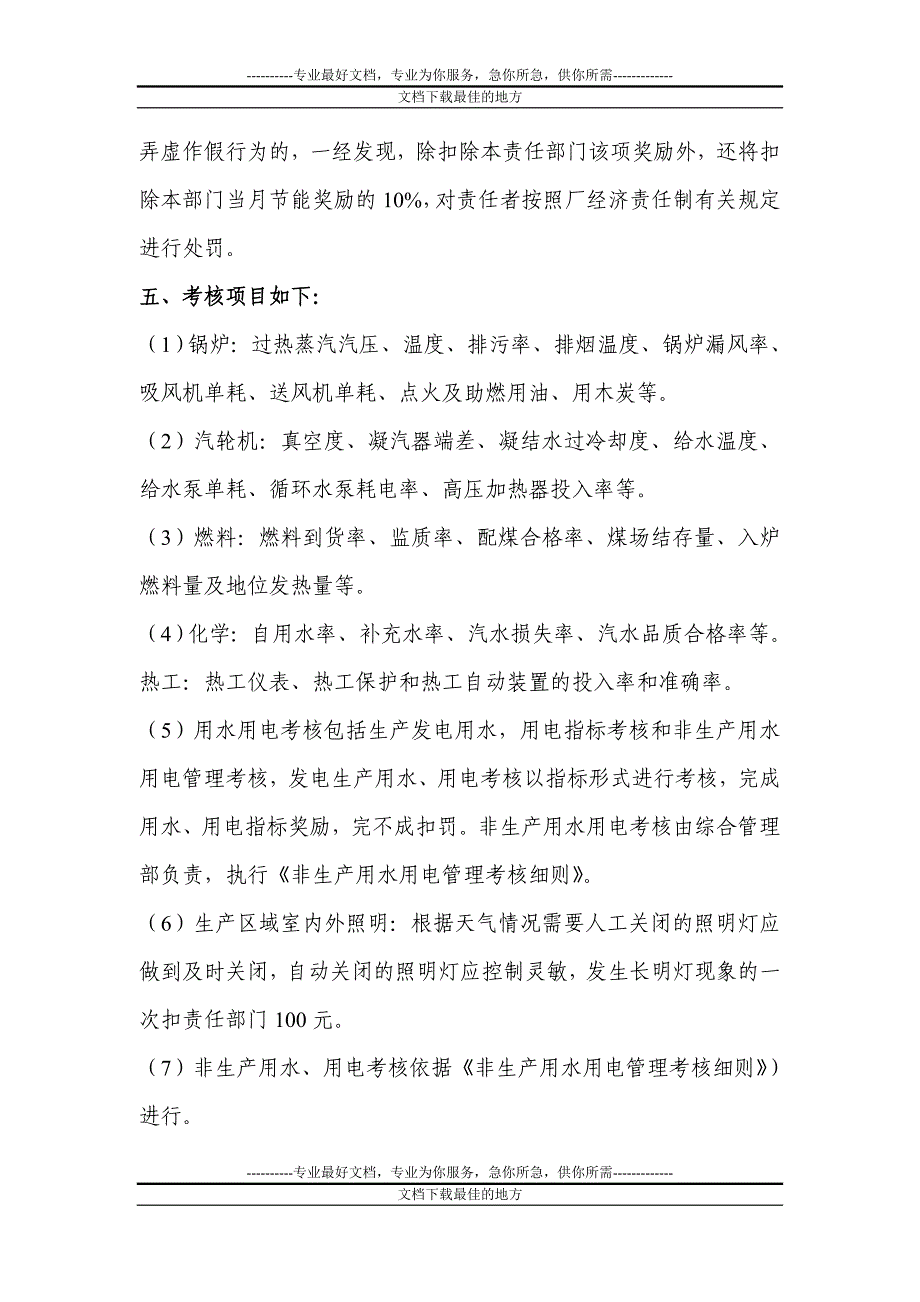 ----------专业最好文档，专业为你服务，急你所急，供你所需-------------
文档下载最佳的地方
弄虚作假行为的，一经发现，除扣除本责任部门该项奖励外，还将扣
除本部门当月节能奖励的 10%，对责任者按照厂经济责任制有关规定
进行处罚。
五、考核项目如下：
（1）锅炉：过热蒸汽汽压、温度、排污率、排烟温度、锅炉漏风率、
吸风机单耗、送风机单耗、点火及助燃用油、用木炭等。
（2）汽轮机：真空度、凝汽器端差、凝结水过冷却度、给水温度、
给水泵单耗、循环水泵耗电率、高压加热器投入率等。
（3）燃料：燃料到货率、监质率、配煤合格率、煤场结存量、入炉
燃料量及地位发热量等。
（4）化学：自用水率、补充水率、汽水损失率、汽水品质合格率等。
热工：热工仪表、热工保护和热工自动装置的投入率和准确率。
（5）用水用电考核包括生产发电用水，用电指标考核和非生产用水
用电管理考核，发电生产用水、用电考核以指标形式进行考核，完成
用水、用电指标奖励，完不成扣罚。非生产用水用电考核由综合管理
部负责，执行《非生产用水用电管理考核细则》。
（6）生产区域室内外照明：根据天气情况需要人工关闭的照明灯应
做到及时关闭，自动关闭的照明灯应控制灵敏，发生长明灯现象的一
次扣责任部门 100 元。
（7）非生产用水、用电考核依据《非生产用水用电管理考核细则》）
进行。
----------专业最好文档，专业为你服务，急你所急，供你所需-------------
文档下载最佳的地方